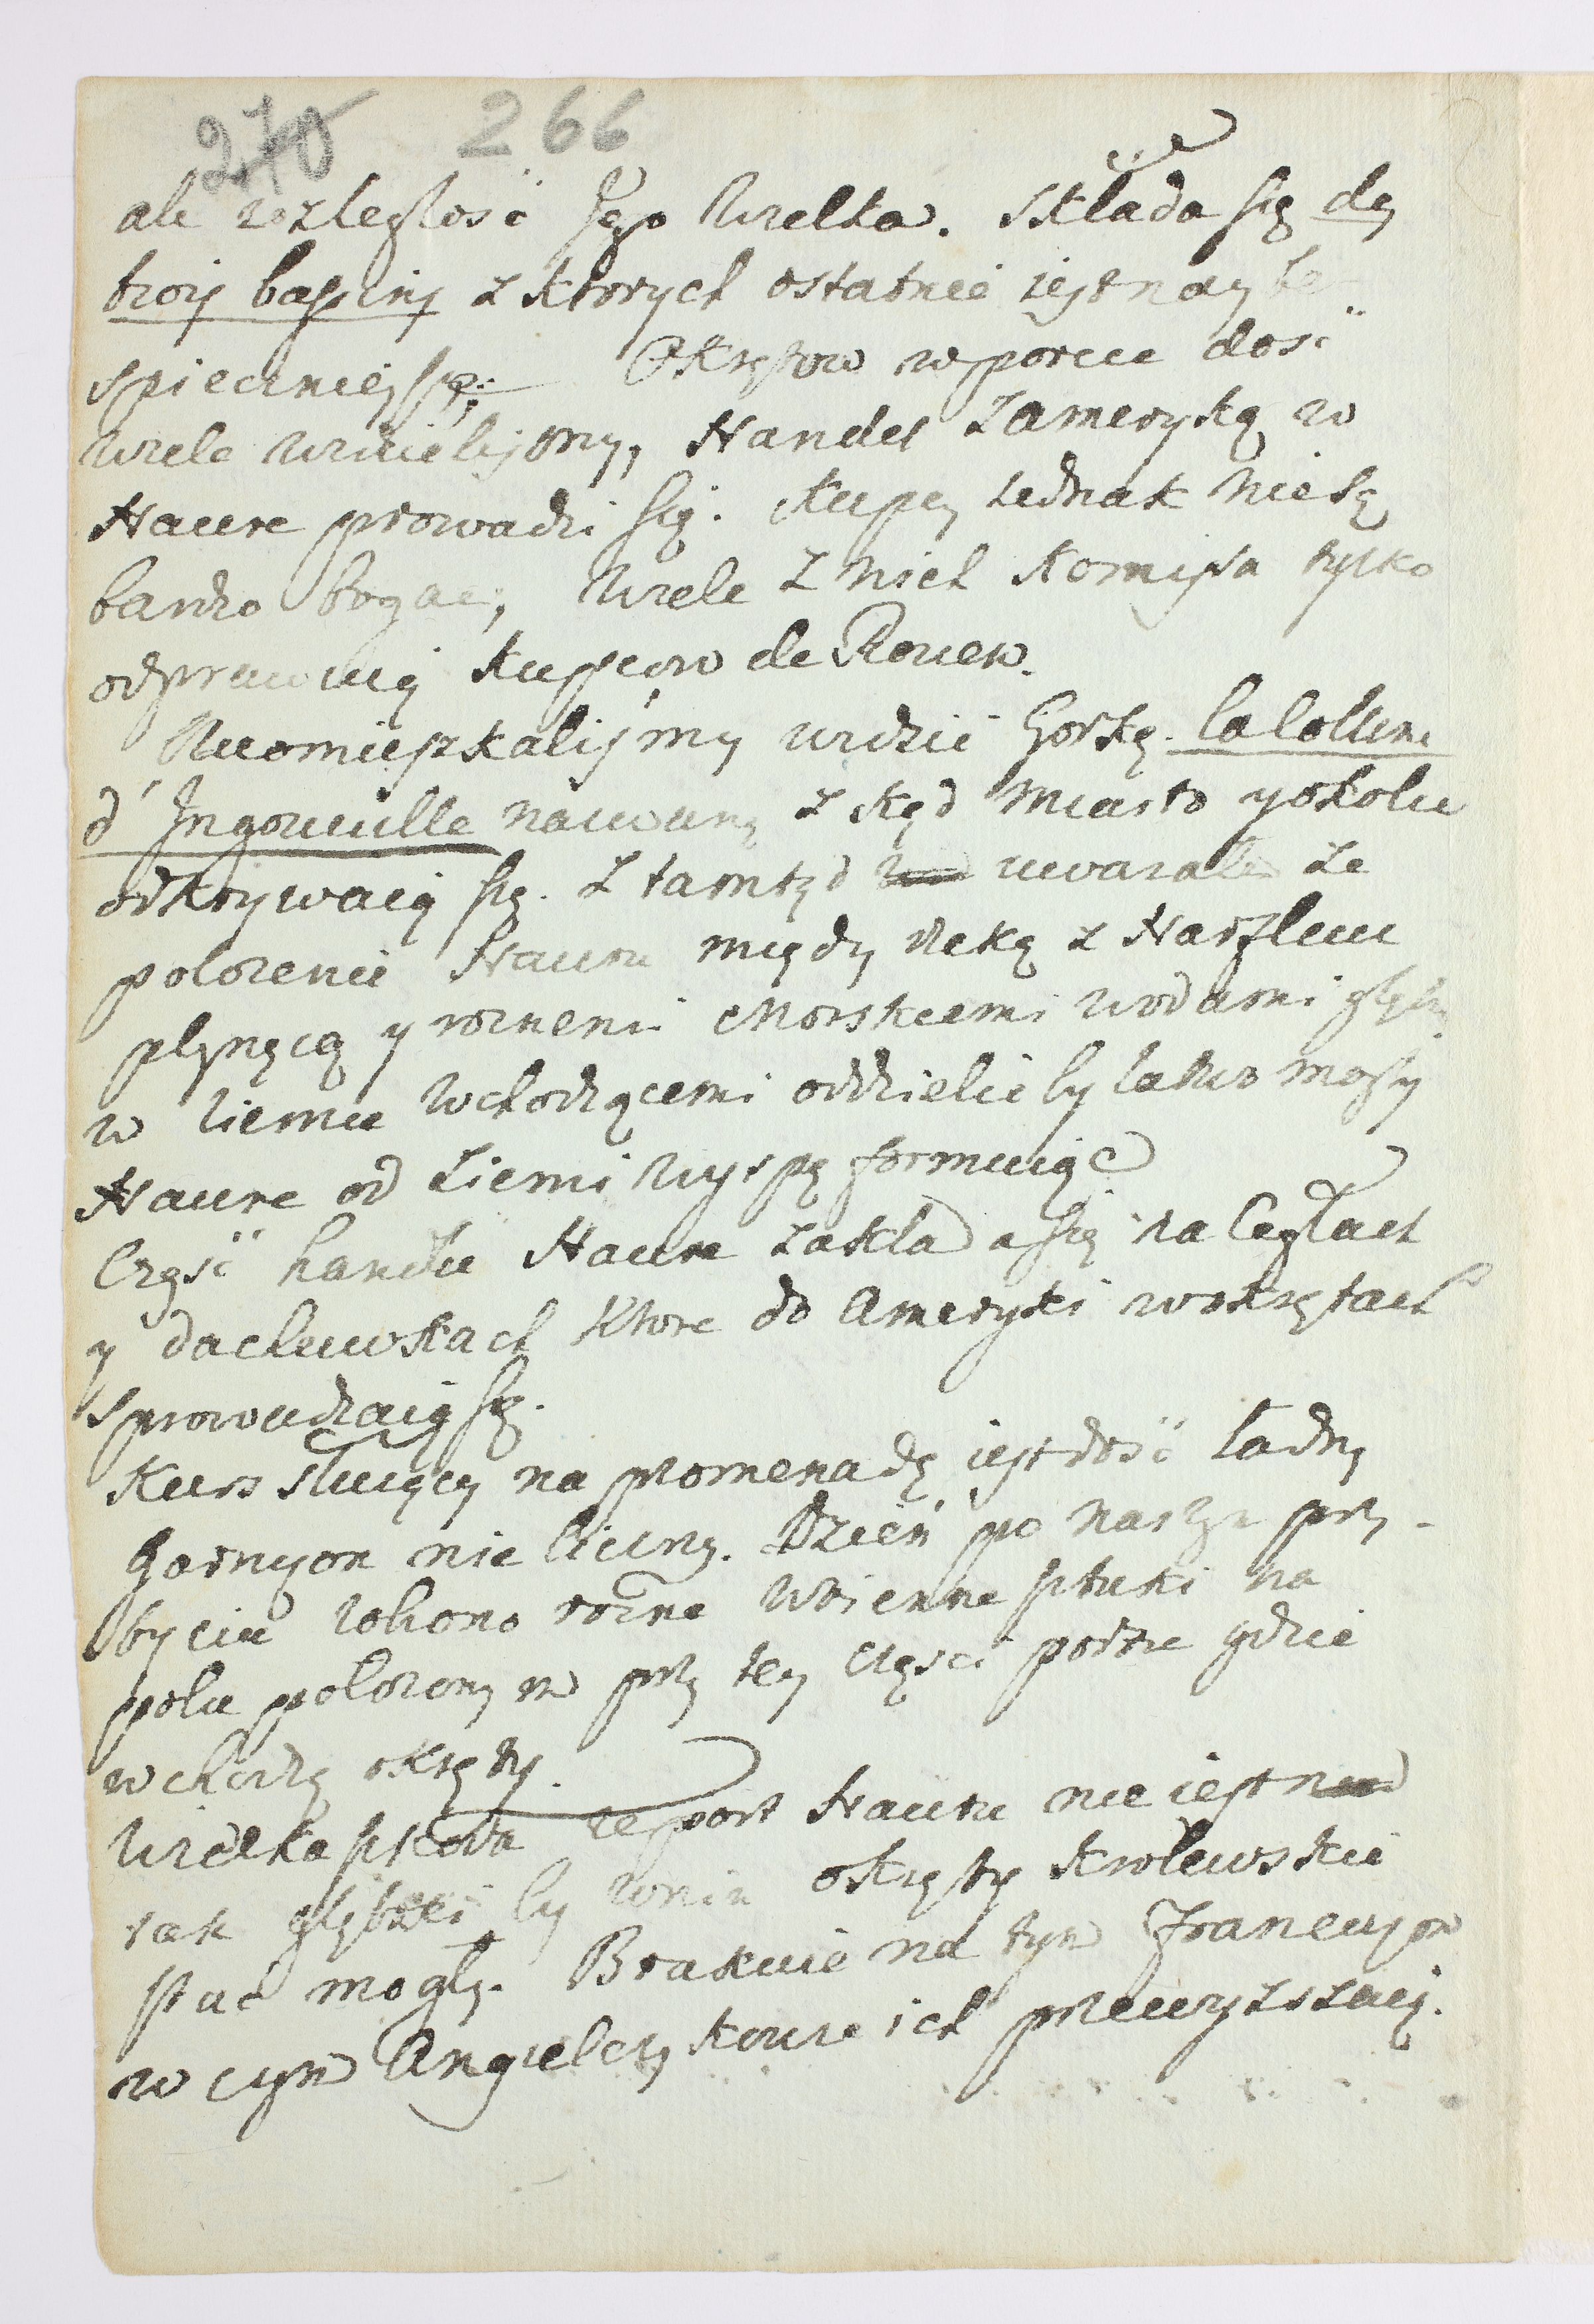 270 266
ale rozległość Jego Wielka. Składa się dę
troij bassiny z ktorych ostatnie iest nay be-
spiecznieysze; Okrętow w porcie dosć
wiele widzielismy, Handel z Ameryką w
Haure prowadzi się. Kupcy iednak nie są
bardzo bogaci, Wiele z nich Komissa tylko
odprawuią Kupcow de Rouen.
Nieomieszkalismy widzieć Gorkę. la Colline
d'Ingouville nazwaną z kąd miasto y okolice
odkrywaią się. z tamtąd uwazałem ze
polozenie Hauru między rzeką z Harfleur
płynącą y roznemi Morskiemi wodami
w ziemie wchodzącemi oddzielic by łatwo mozny
Haure od Ziemi wyspę formuiąc
Częsć handlu Haure zakłada się na Cegłach
y dachuwkach Ktore do Ameryki w okrętach
sprowadzaią się.
Kurs sluzący na promenadę iest dosć ładny
Garnizon nie liczny. Dzień po naszym przy-
byciu robiono rozne Woienne sztuki na
polu polozonym przy tey częsci portu gdzie
wchodzą okręty.
Wielka szkoda ze port Hauru nie iest
tak głęboki by w nim okręty Krolewskie
stac mogly. Brakuie na tym Francuzom
w czym Anglicy Ktorzy ich przewyzszaią.